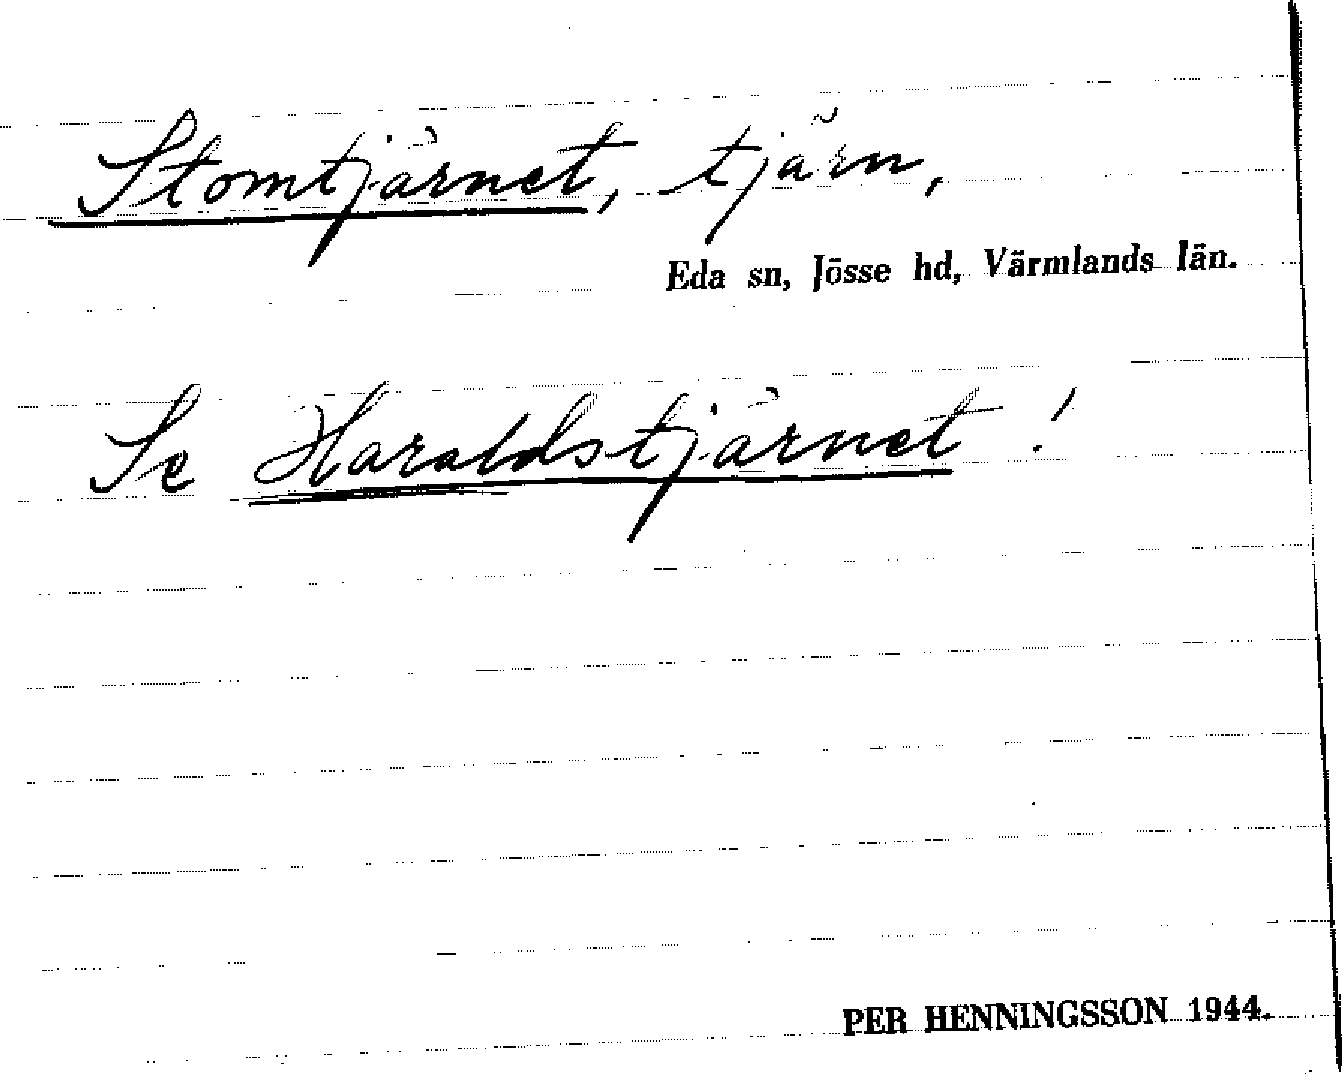 Stomtjärnet, tjärn,
Eda sn, Jösse hd, Värmlands län.
Se Haraldstjärnet!
PER HENNINGSSON 1944.